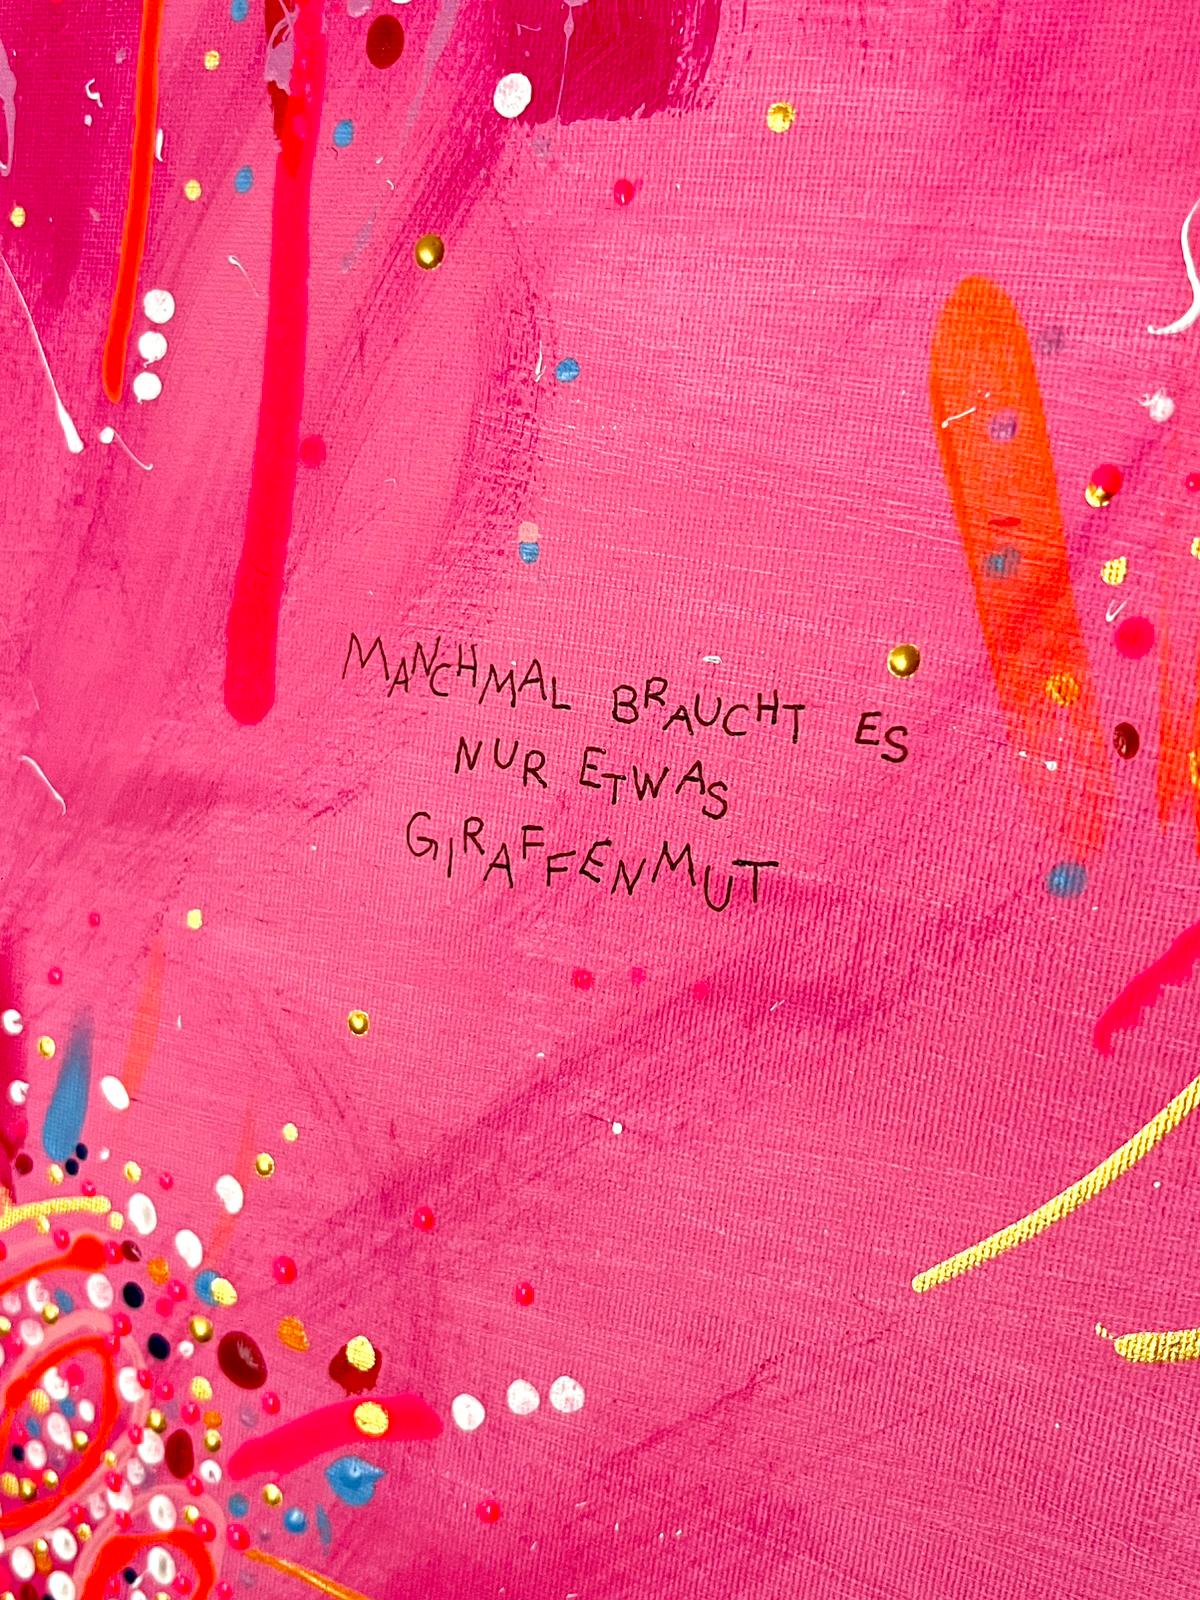 MANCHMAL BRAUCHT ES
NUR ETWAS
GIRAFFENMUT